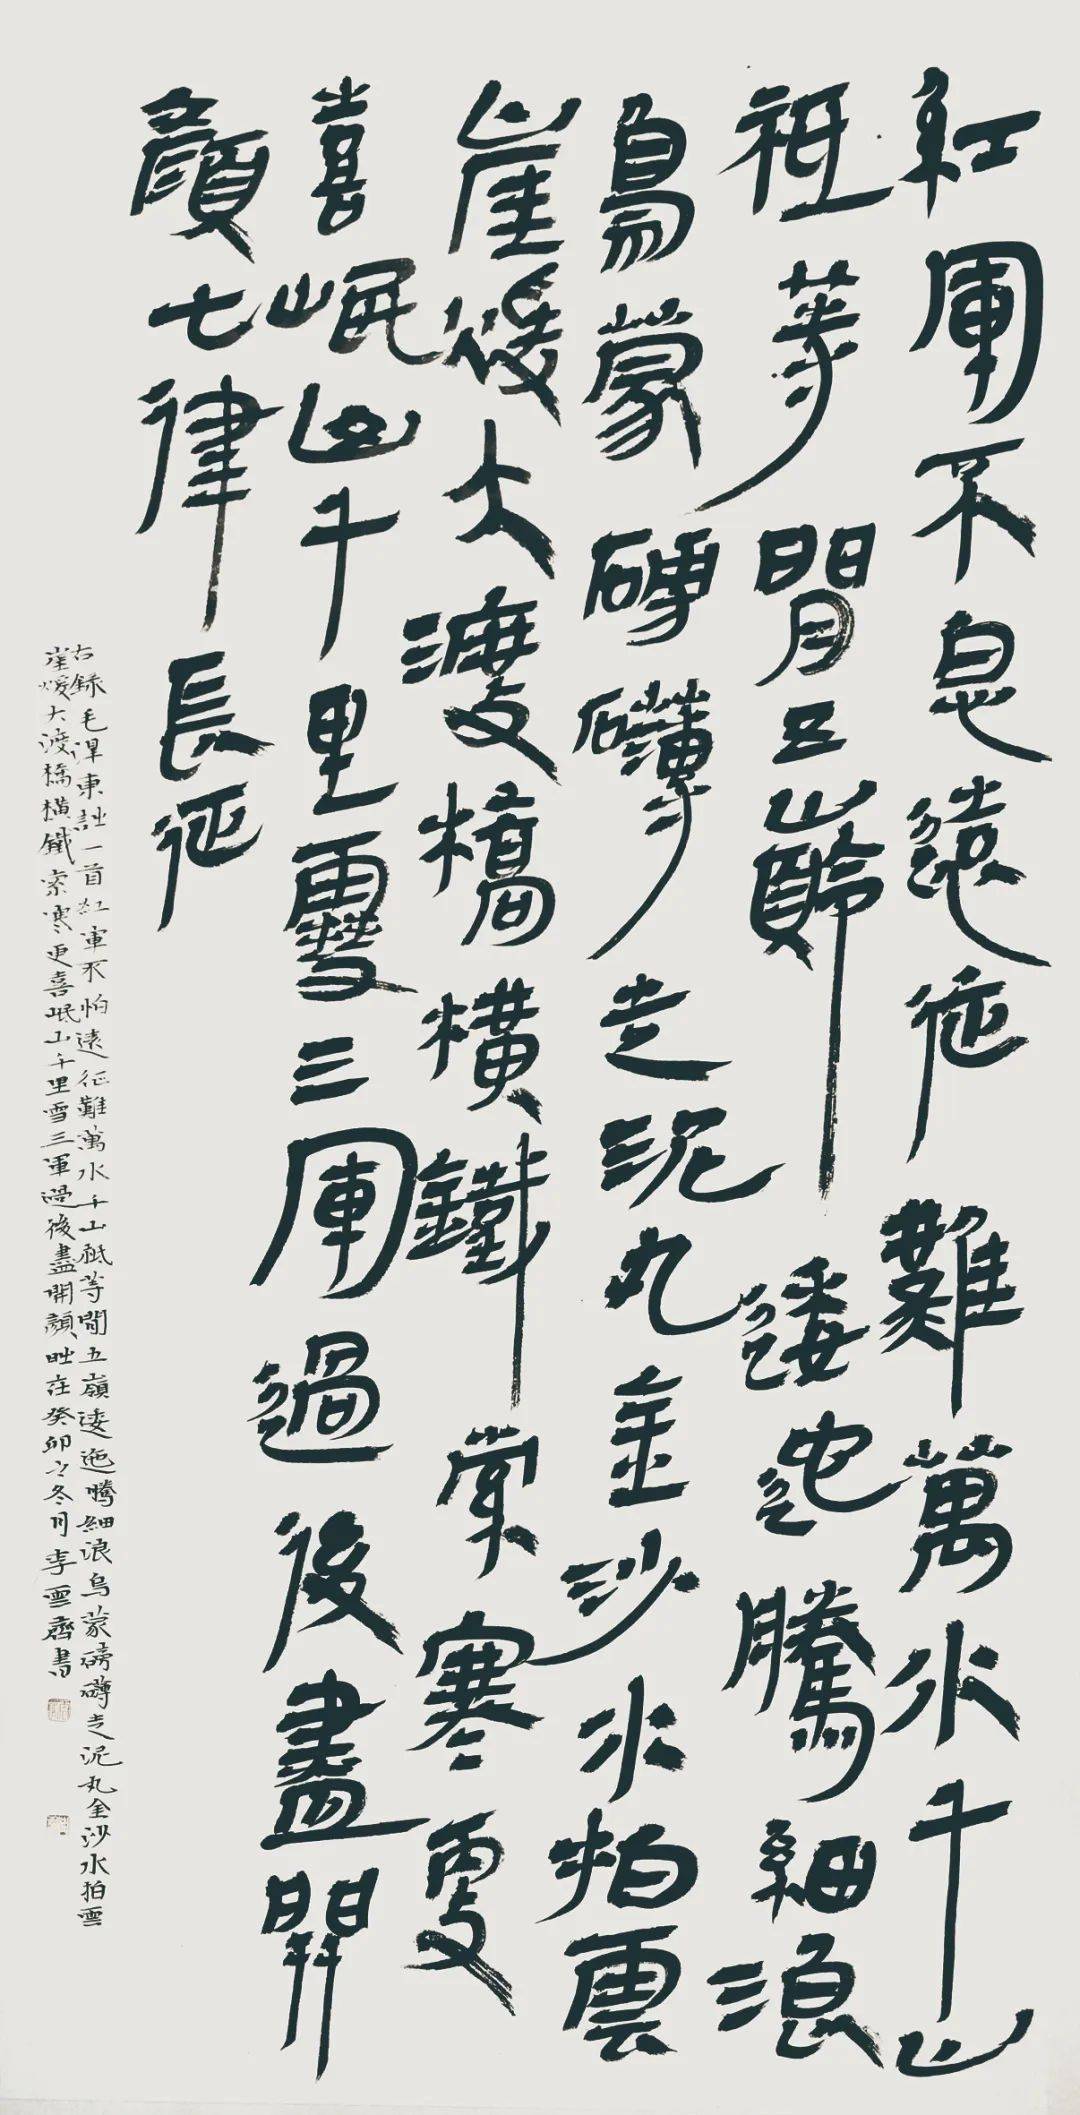 紅軍不怕遠征難萬水千山
祗等閒五嶺逶迤騰細浪
烏蒙磅礴走泥丸金沙水拍雲
崖煖大渡橋橫鐵索寒更
喜岷山千里雪三軍過後盡開
顏七律長征
右錄毛澤東詩一首紅軍不怕遠征難萬水千山祗等閒五嶺逶迤騰細浪烏蒙磅礴走泥丸金沙水拍雲
崖煖大渡橋橫鐵索寒更喜岷山千里雪三軍過後盡開顏時在癸卯之冬月李雲齊書